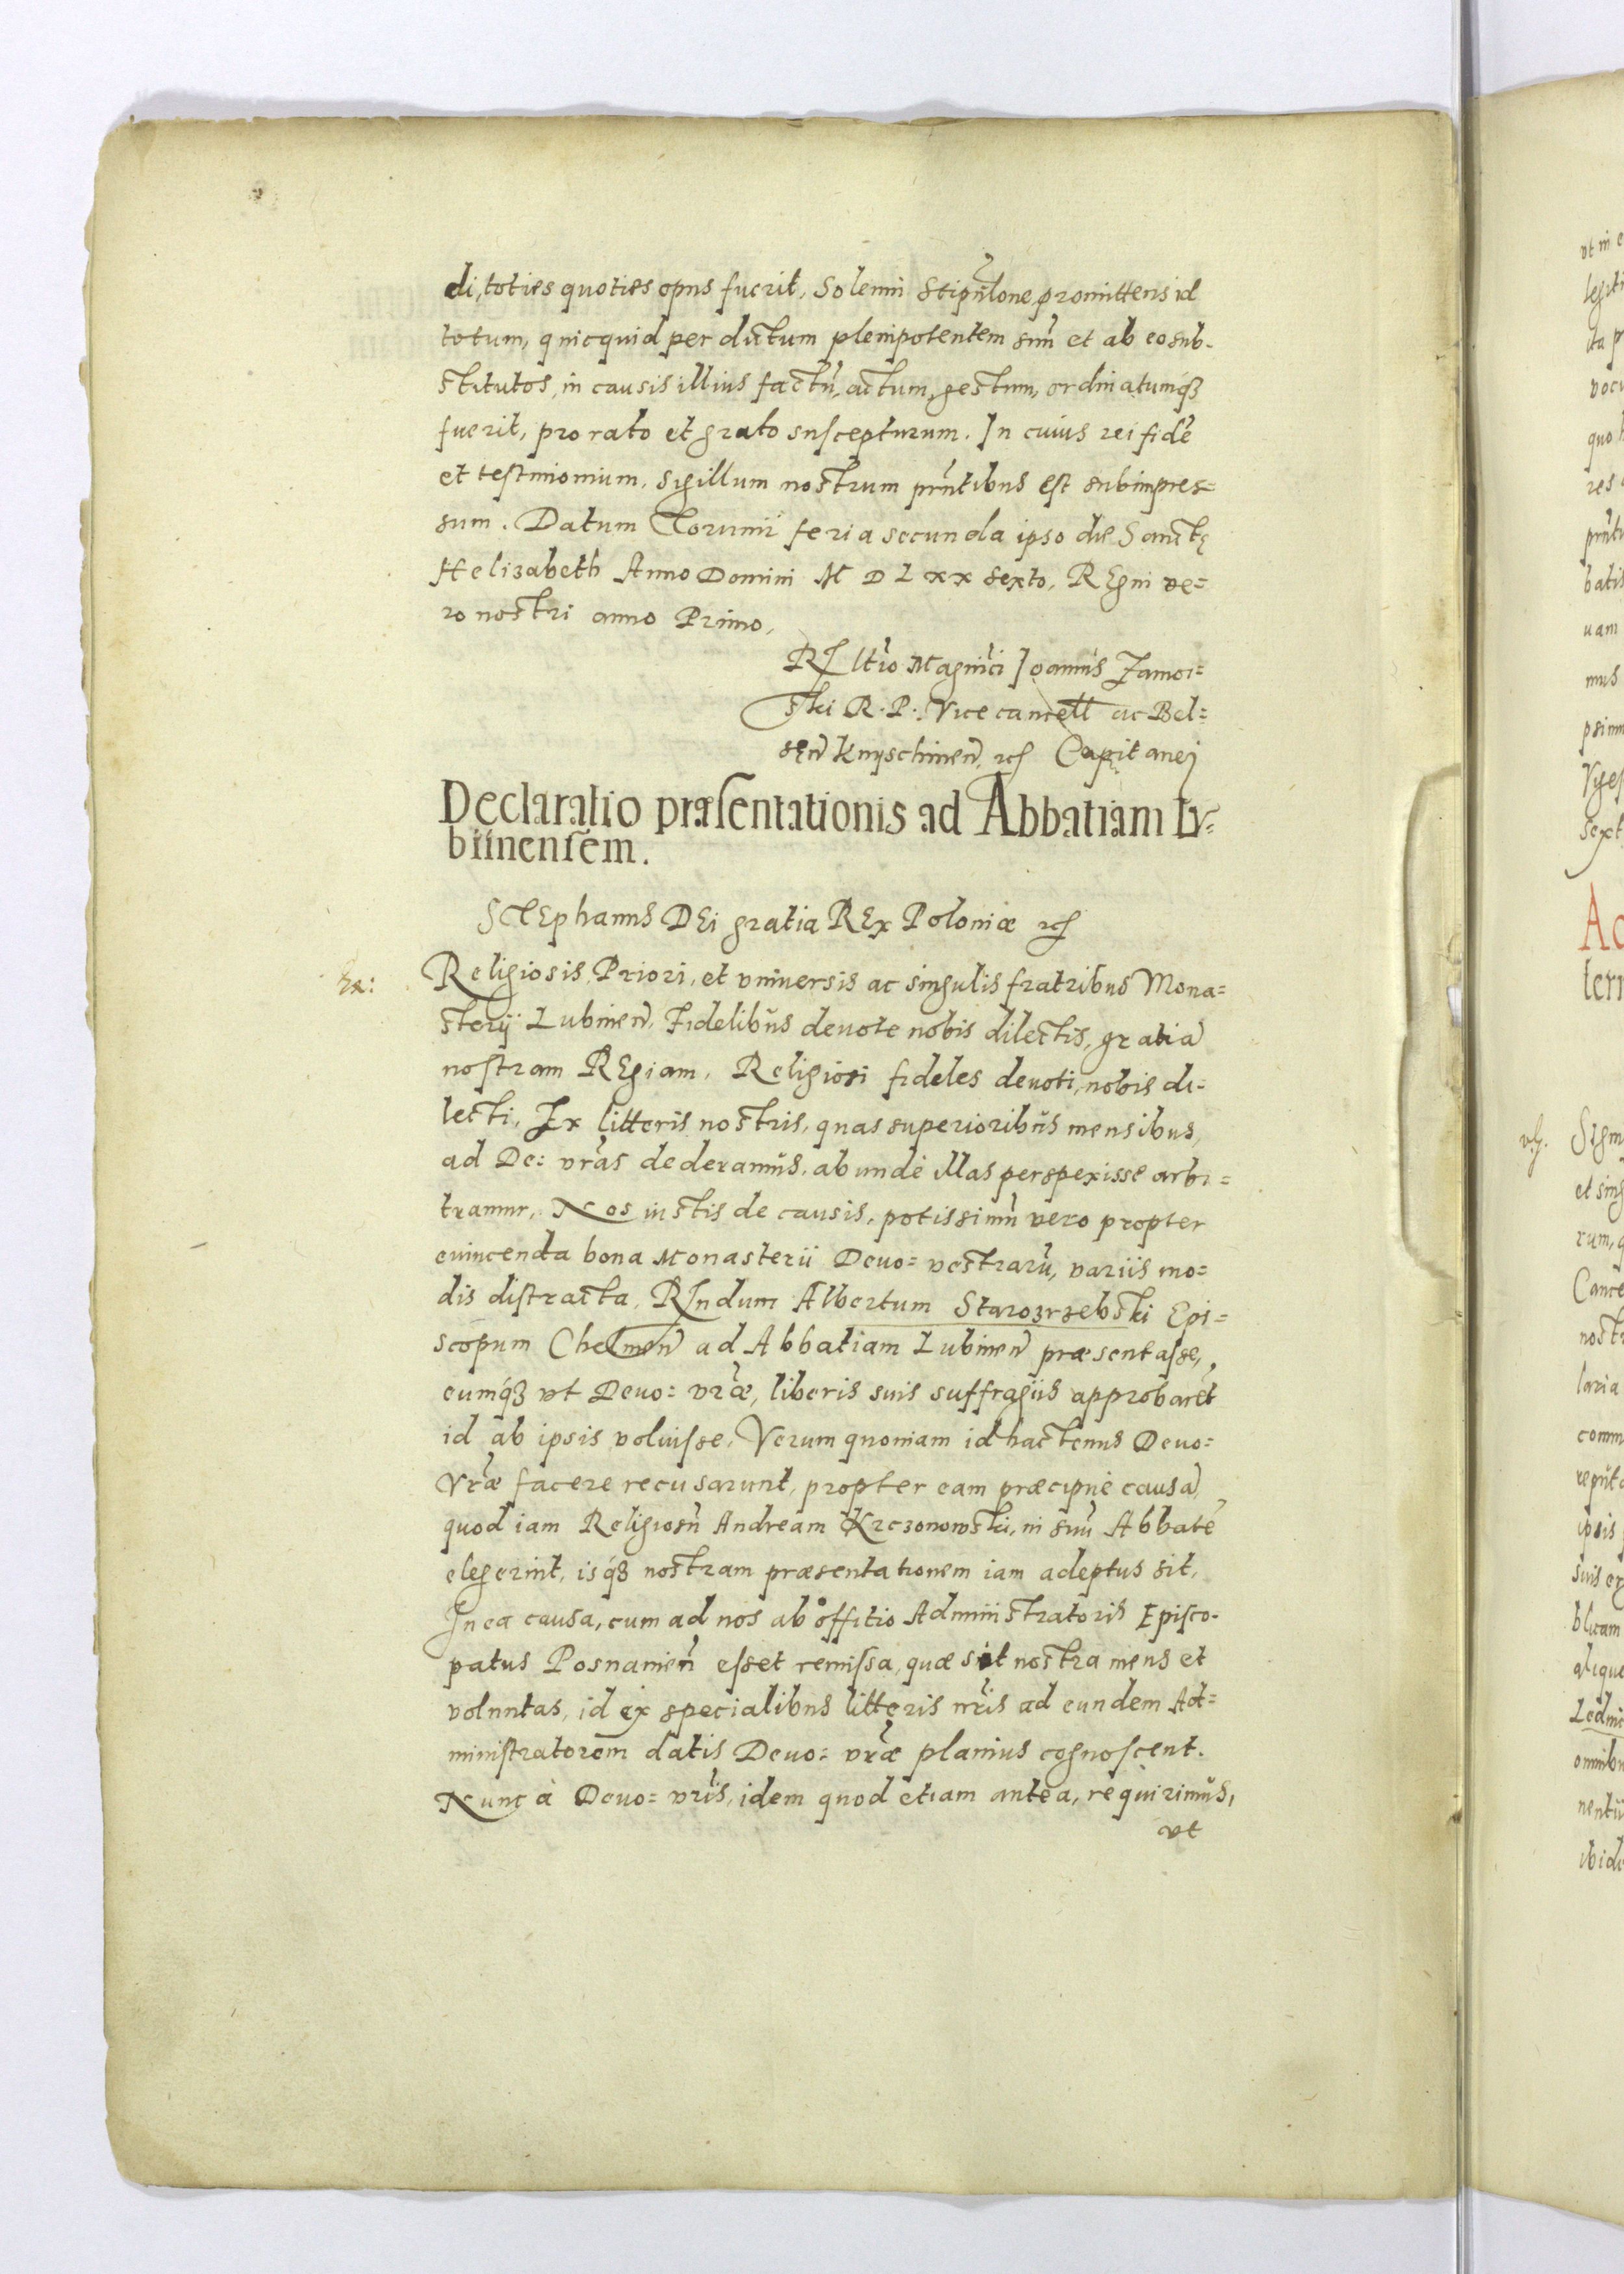 di, toties quoties opus fuerit, Solemni Stipul̃one, promittens id
totum, quicquid per dictum plenipotentem suũ et ab eo sub-
stitutos, in causis illius factũ, actum, gestum, ordinatumq́ꝫ
fuerit, pro rato et grato suscepturum. In cuius rei fidẽ
et testimonium, Sigillum nostrum prñtibus est subimpres=
sum. Datum Torunii feria secunda ipso die Sanctę
Helizabeth Anno Domini M D L xx sexto, REgni ve=
ro nostri anno Primo,
Rel̃tio Magnĩci Joannis Zamoi=
ski R. P. Vicecancell ac Bel=
sen̄ Knyschinen̄ etc Capitanej
Declaratio præsentationis ad Abbatiam Lv=
biinensem.
STEphanus DEi gratia REx Poloniæ etc
Religiosis Priori, et vniuersis ac singulis fratribus Mona=
sterij Lubinen̄, Fidelibus deuote nobis dilectis, gratiã
nostram REgiam. Religiosi fideles deuoti, nobis di=
lecti, Ex litteris nostris, quas superioribus mensibus,
ad De: vrãs dederamus, abundè illas perspexisse arbi=
tramur, Nos iustis de causis, potissimũ vero propter
euincenda bona Monasterii Deuo= vestrarũ, variis mo=
dis distracta, Rn̄dum Albertum Starozrzebski Epi=
scopum Chelmen̄ ad Abbatiam Lubinen̄ præsentasse,
eumq́ꝫ vt Deuo= vrãe, liberis suis suffragiis approbarẽt
id ab ipsis voluisse, Verum quoniam id hactenus Deuo=
Vrãe facere recusarunt, propter eam præcipuè causã,
quod iam Religiosũ Andream Krczonowski, in suũ Abbatẽ
elegerint, isq́ꝫ nostram præsentationem iam adeptus sit,
In ea causa, cum ad nos ab offitio Administratoris Episco-
patus Posnanien̄ esset remissa, quæ sit nostra mens et
voluntas, id ex specialibus litteris nr̃is ad eundem Ad=
ministratorem datis Deuo= vrãe planius cognoscent.
Nunc à Deuo= vrĩs, idem quod etiam antea, requirimus,
vt